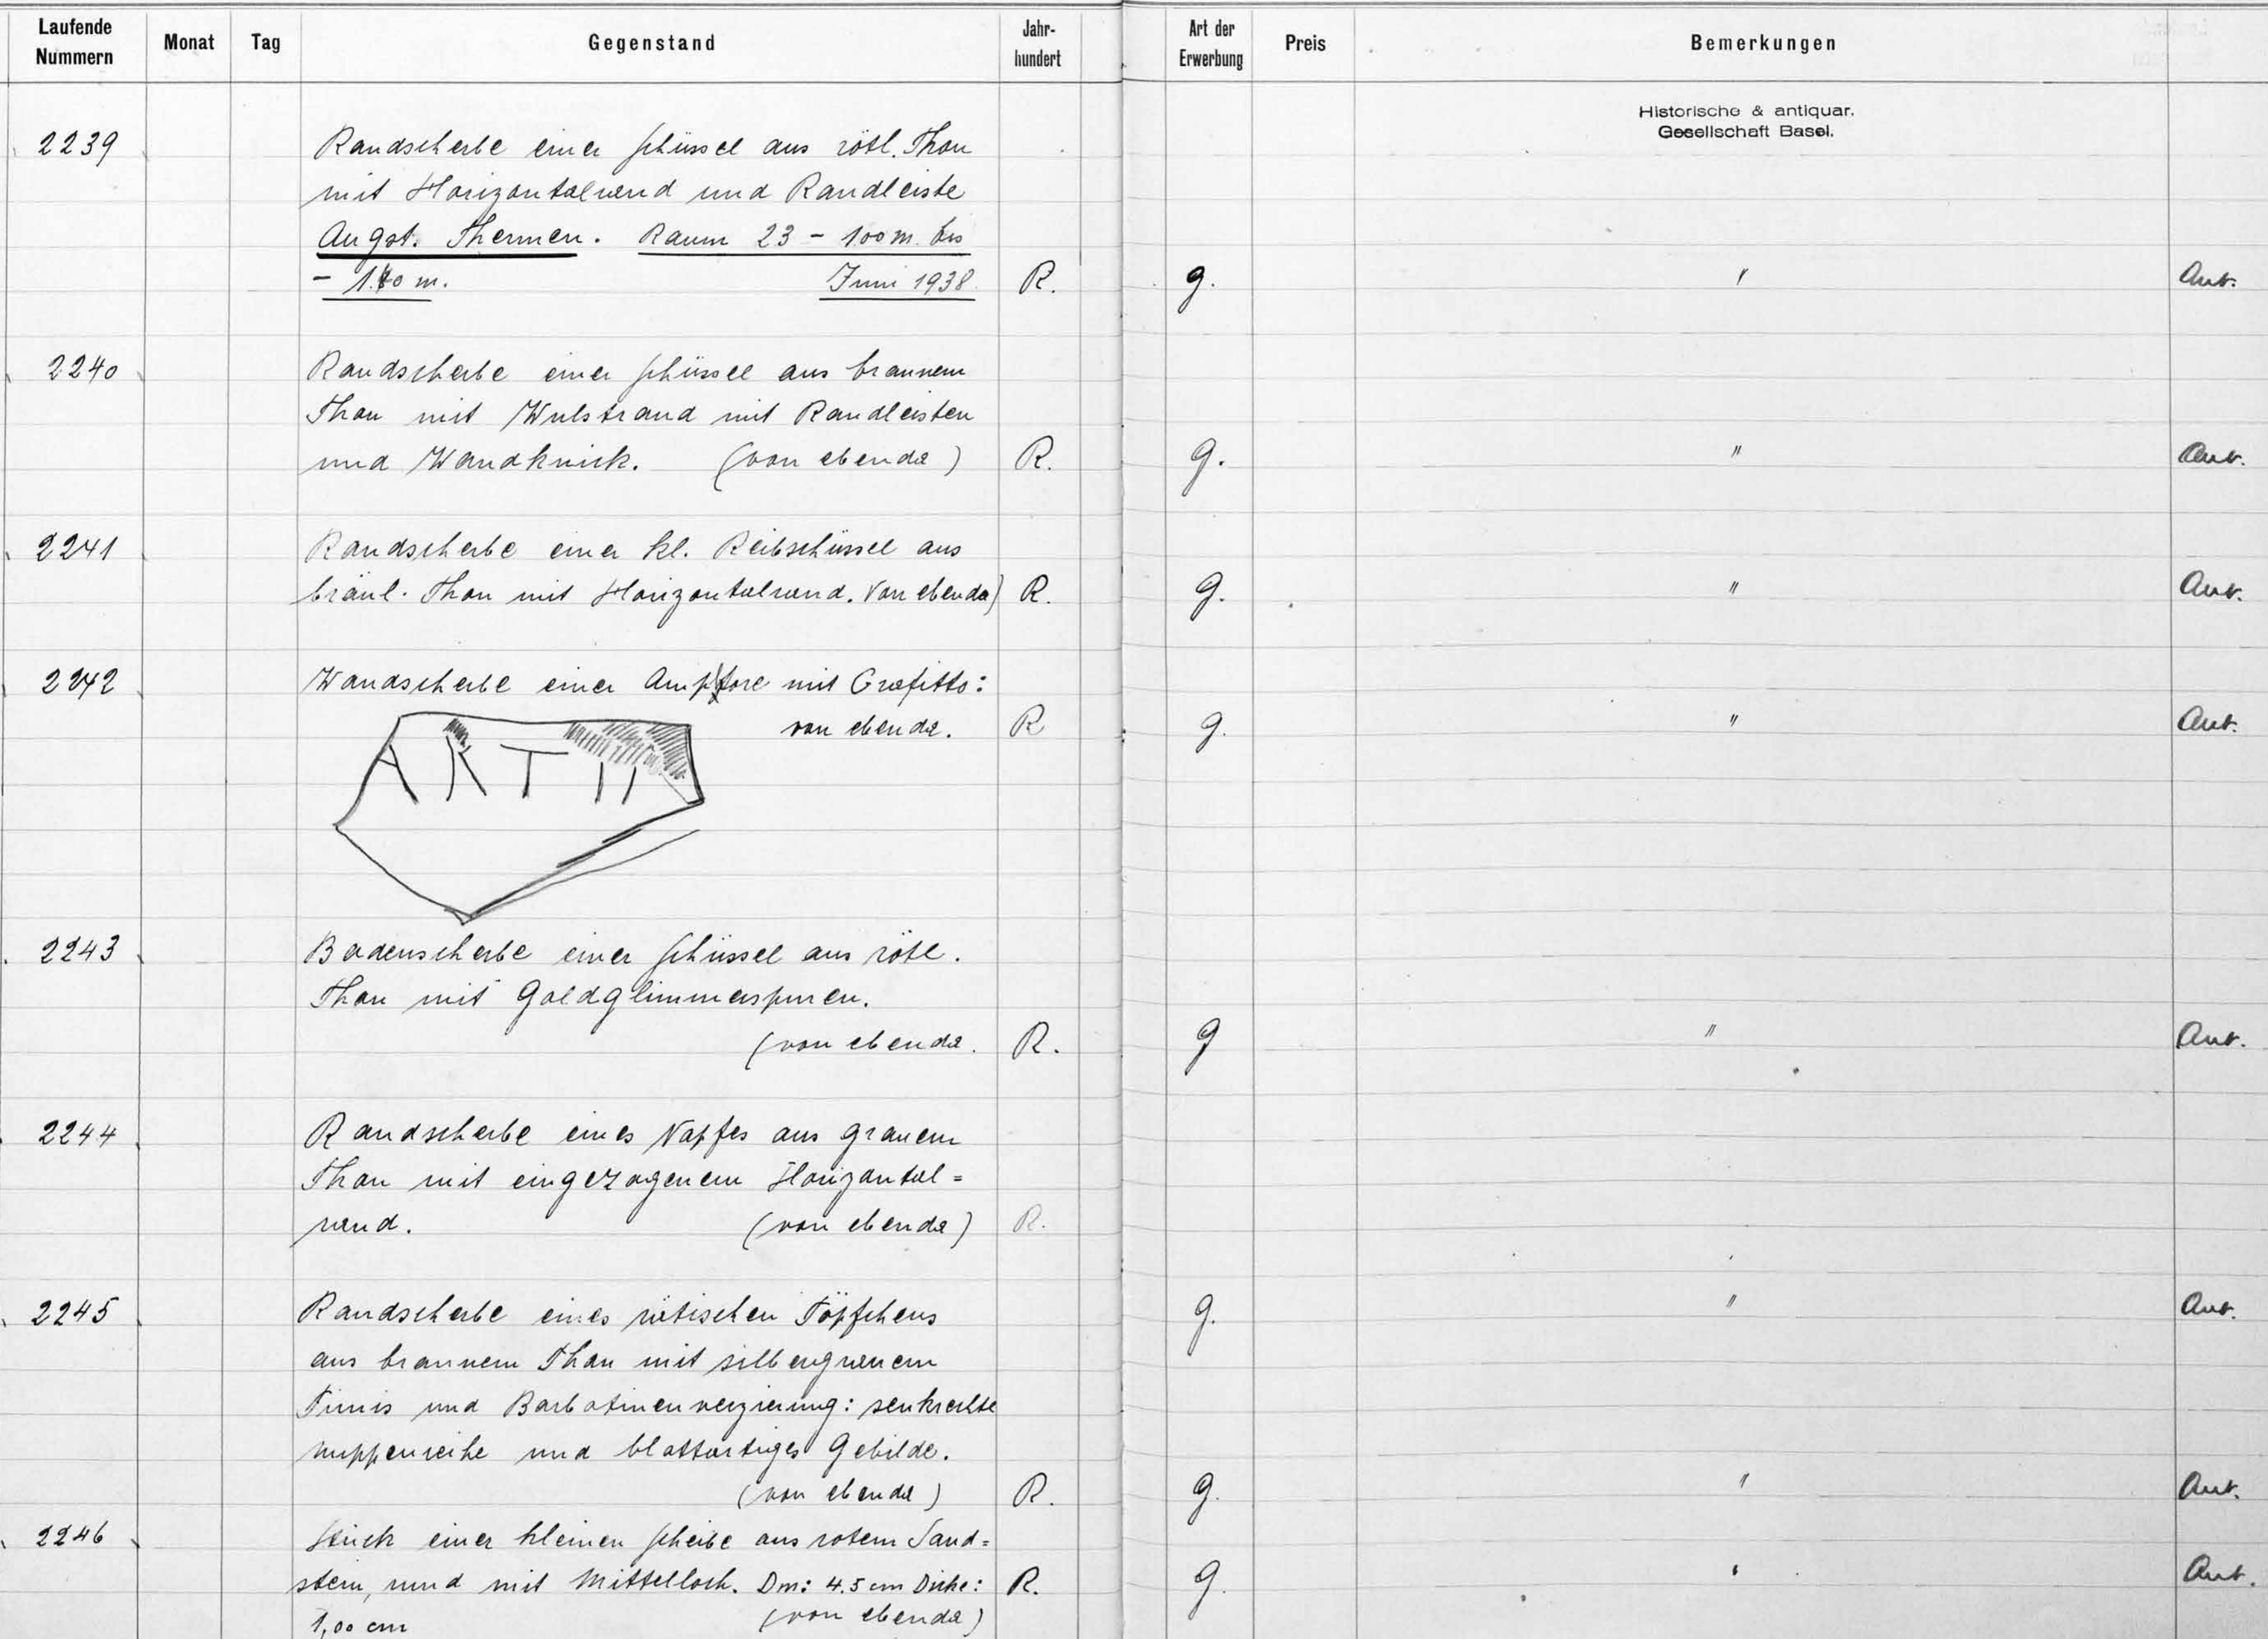 Laufende Nummern Monat Tag Gegenstand Jahr-hundert Art der Erwerbung Preis Bemerkungen
Historische & antiquar.
Gesellschaft Basel.
2239 Randscherbe einer Schüssel aus rötl. Thon
mit Horizontalrand und Randleiste
Augst. Thermen. Raum 23 - 1.00 m. bis
- 1.70 m. Juni 1938. R. g. " Ant.
2240 Randscherbe einer Schüssel aus braunem
Thon mit Wulstrand mit Randleisten
und Wandknick. (von ebenda) R. g. " Ant.
2241 Randscherbe einer kl. Reibschüssel aus
bräunl. Thon mit Horizontalrand. Von ebenda) R. g. " Ant.
2242 Wandscherbe einer Ampfore mit Grafitto:
von ebenda. R g. " Ant.
A K T I I
2243 Bodenscherbe einer Schüssel aus rötl.
Thon mit Goldglimmerspuren.
(von ebenda. R. g " Ant.
2244 Randscherbe eines Napfes aus grauem
Thon mit eingezogenem Horizontal=
rand. (von ebenda) R.
2245 Randscherbe eines rätischen Töpfchens g. " Ant.
aus braunem Thon mit silbergrauem
Firnis und Barbotinenverzierung: senkrechte
Nuppenreihe und blattartiges Gebilde.
(von ebenda) R. g. " Ant.
2246 Stück einer kleinen Scheibe aus rotem Sand=
stein, rund mit Mittelloch. Dm: 4.5 cm Dicke: R. g. " Ant.
1,00 cm (von ebenda)